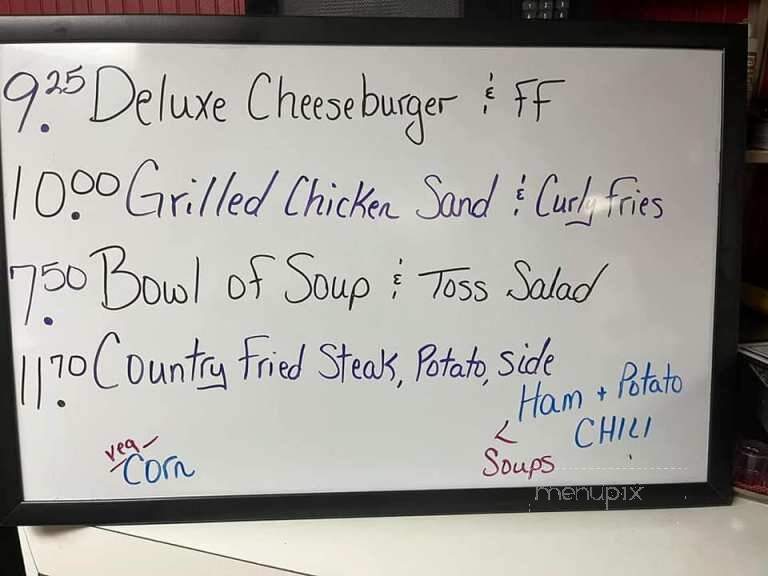 9.25 Deluxe Cheeseburger & FF
10.00 Grilled Chicken Sand & Curly fries
7.50 Bowl of Soup & Toss Salad
11.70 Country Fried Steak, Potato, side
Ham + Potato
CHILI
veg - Corn
< Soups
menupix